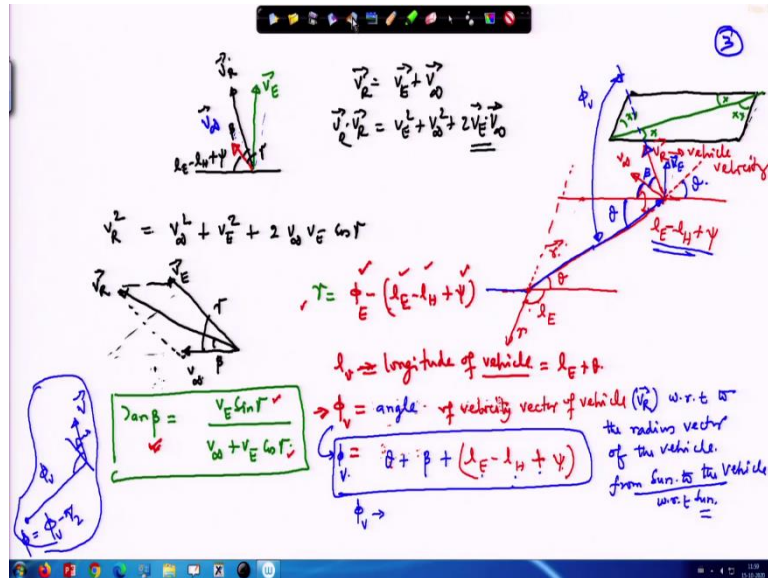 3
V⃗_R
V⃗_E
V⃗_∞
β
γ
l_E - l_H + ψ
V⃗_R = V⃗_E + V⃗_∞
V⃗_R · V⃗_R = V_E² + V_∞² + 2 V⃗_E · V⃗_∞
V_R² = V_∞² + V_E² + 2 V_∞ V_E cos γ
ϕ_V
x
x
V⃗_R → vehicle
velocity
V_∞
β
V⃗_E
θ
θ
l_E - l_H + ψ
θ
l_E
V⃗_R
V⃗_E
γ
β
V_∞
γ = ϕ_E - (l_E - l_H + ψ)
l_v ⇒ longitude of vehicle = l_E + θ.
tan β = V_E sin γ / V_∞ + V_E cos γ
ϕ_V = angle of velocity vector of vehicle (V⃗_R) w.r.t to
the radius vector
of the vehicle.
from Sun to the vehicle
w.r.t Sun.
ϕ_V = θ + β + (l_E - l_H + ψ)
ϕ_V →
V⃗
ϕ_V
ϕ = ϕ_V - π/2
11:59
15-10-2020